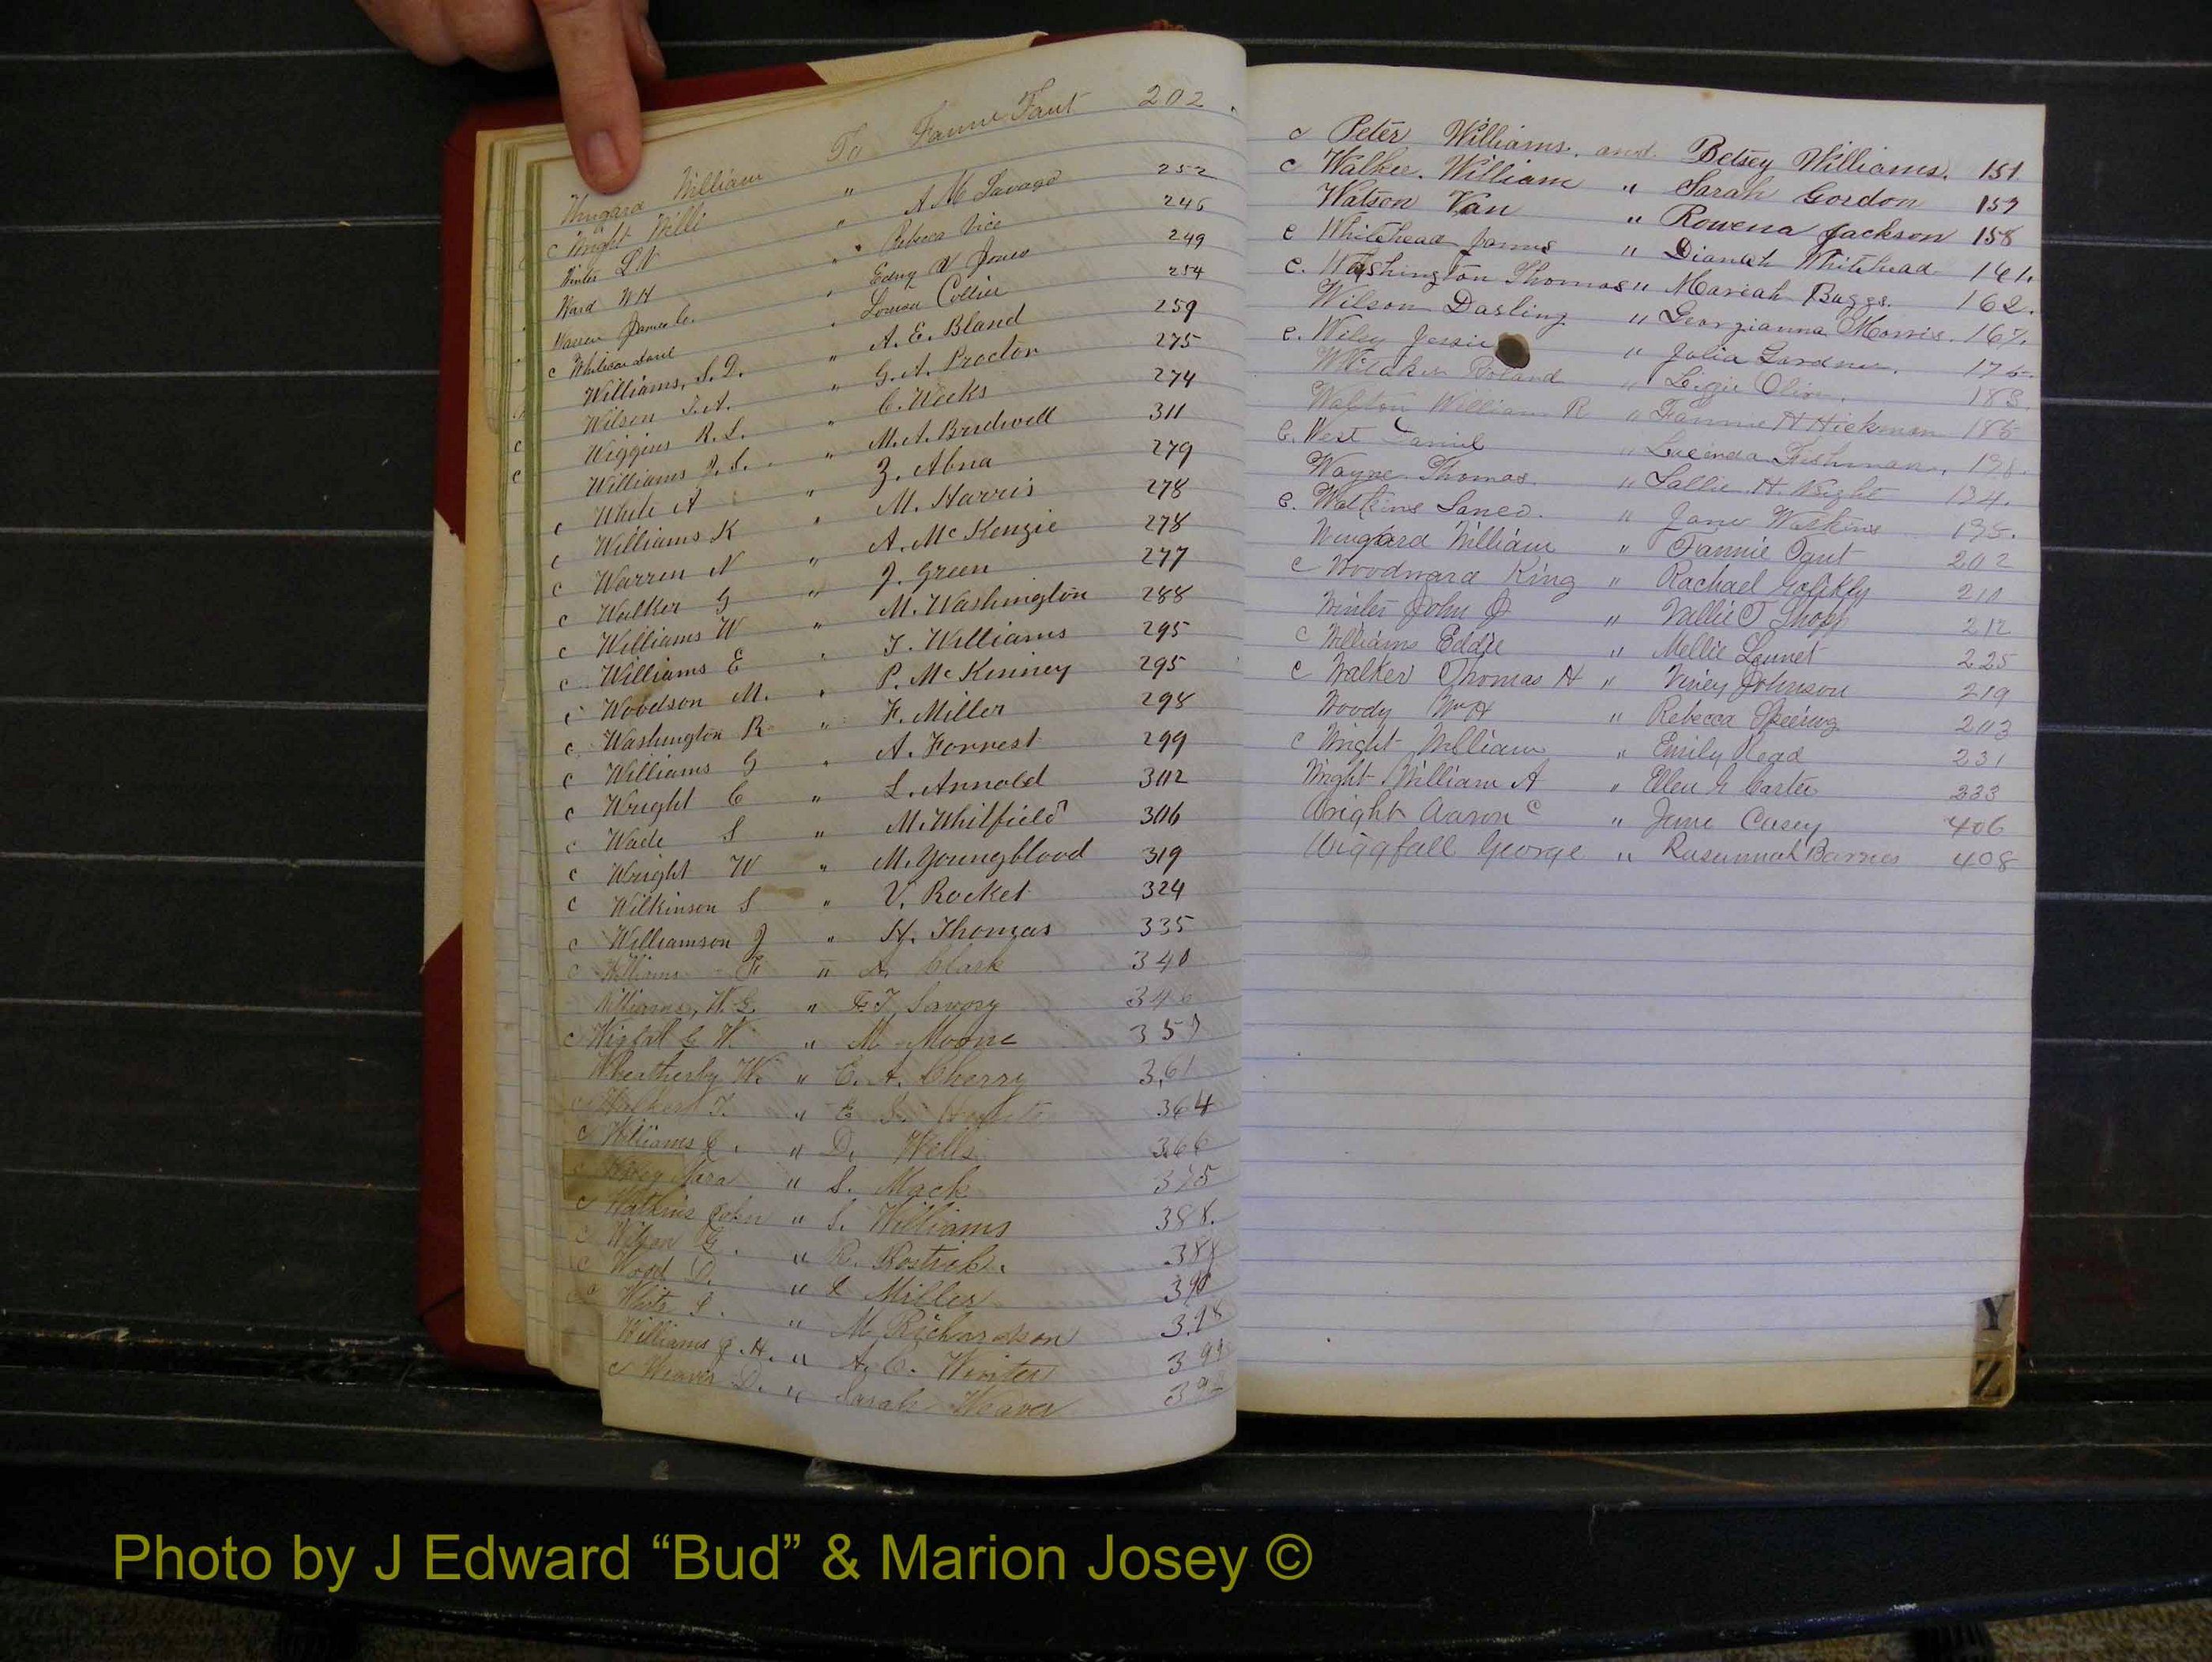 Wingard William To Fannie Faut 202
c Wright Willi "
Winter L N " A M Savage 252
Ward W H " Rebecca Vice 246
Warren James C. " Edny V Jones 249
c Louisa Collier 254
Williams, S. D. " A. E. Bland 259
Wilson J. A. " G. A. Proctor 275
c Wiggins R. L. " C. Weeks 274
c Williams J. S. " M. A. Bridwell 311
c White A " Z. Abna 279
c Williams K " M. Harris 278
c Warren N " A. McKenzie 278
c Walker G " J. Green 277
c Williams W " M. Washington 288
c Williams E " J. Williams 295
c Woodson M. " P. McKinney 295
c Washington R " F. Miller 298
c Williams G " A. Forrest 299
c Wright C " L. Arnold 302
c Wade S " M. Whitfield 306
c Wright W " M. Youngblood 319
c Wilkinson S " V. Rocket 324
c Williamson J " H. Thomas 335
c Williams F " Clark 340
Williams, W. E. " E. J. Savory 346
c W " M Moore
Wheatherby W. " C. A. Cherry 361
c Walker T. " E 364
c Williams C. " D. Wells 366
" S. Mack 375
c Watkins John " S. Williams 388.
c Wilson G. " R. Bostick. 388
c Wood D. " L Miller 390
c White I. " M Richardson 398
Williams J. H. " A. C. Winter 399
c Weaver D. " Sarah Weaver
c Peter Williams. and. Betsey Williams. 151.
c Walker. William " Sarah Gordon 157
Watson Van " Rowena Jackson 158
c Whitehead James " Dianah Whitehead 161.
c. Washington Thomas " Mariah Baggs. 162.
Wilson Darling " Georgianna Morris. 167.
c. Wiley Jessie " Julia Gardner. 175.
Whitaker Roland " Lizzie Oliver. 183.
Walton William R " Fannie H Hickman 185
C. West Daniel " Lucinda Fishman.
Wayne. Thomas. " Sallie. H. Wright 194.
C. Watkins Saneo. " Jane Watkins 195.
Wingard William " Fannie Faut 202
c Woodward King " Rachael Golikly 211
Winter John J " Vallie T Shopp 212
c Williams Eddie " Mellie Lennet 225
c Walker Thomas H " Viney Johnson 219
Woody Wm H " Rebecca Speering 203
c Wright William " Emily Read 231
Wright William A " Ellen G Carter 233
Wright Aaron c " June Casey 406
Wiggfall George " Rusunnah Barnes 408
Y
Z
Photo by J Edward “Bud” & Marion Josey ©